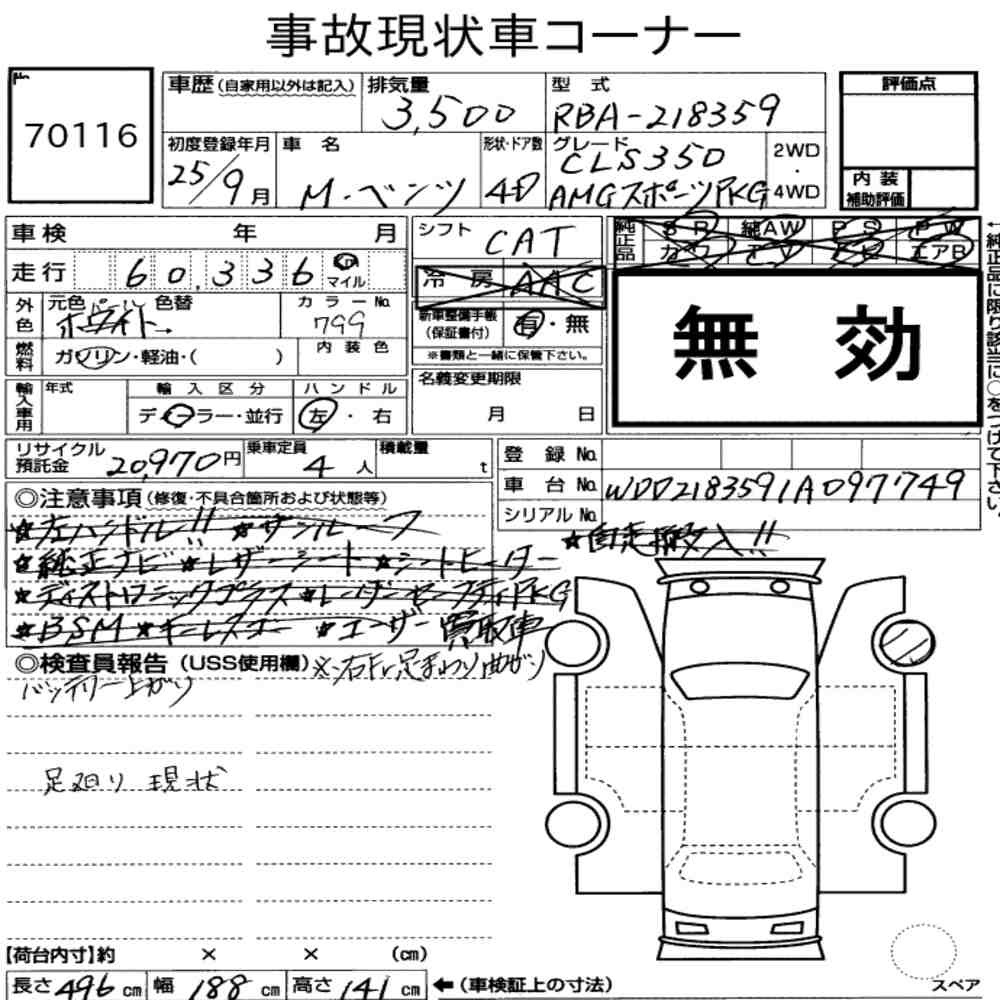 事故現状車コーナー
No.
70116
車歴(自家用以外は記入)
排気量
3,500
型式
RBA-218359
評価点
初度登録年月
25/9月
車名
M・ベンツ
形状・ドア数
4D
グレード
CLS350
AMGスポーツPKG
2WD
・
4WD
内装
補助評価
車検 年 月
走行 60,336 km
マイル
外色
元色 パール 色替
ホワイト→
カラーNo.
799
燃料
ガソリン・軽油・( )
内装色
輸入車用
年式
輸入区分
ディーラー・並行
ハンドル
左・右
シフト
CAT
冷房 AAC
新車整備手帳
(保証書付)
有・無
※書類と一緒に保管下さい。
名義変更期限
月 日
純正品
SR 純AW PS PW
カワ TV ナビ エアB
無効
←純正品に限り該当に○をつけて下さい。
リサイクル
預託金
20,970円
乗車定員
4人
積載量
t
登録No.
車台No. WDD2183591A097749
シリアルNo.
◎注意事項(修復・不具合箇所および状態等)
★左ハンドル!! ★サンルーフ
★自走搬入!!
★純正ナビ★レザーシート★シートヒーター
★ディストロニックプラス★レーダーセーフティPKG
★BSM★キーレスゴー ★ユーザー買取車
◎検査員報告(USS使用欄)
※右Fr足まわり曲がり
バッテリー上がり
足廻り 現状
【荷台内寸】約 × × (cm)
長さ496cm 幅188cm 高さ141cm ←(車検証上の寸法)
スペア